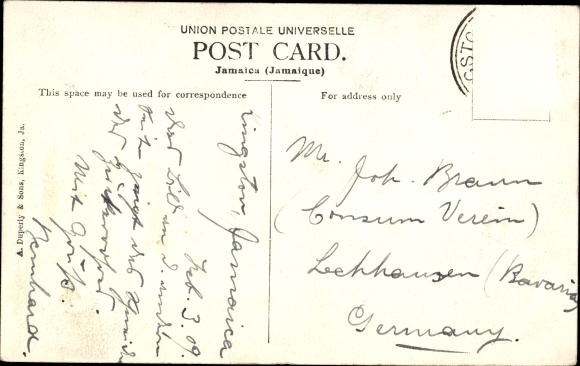 UNION POSTALE UNIVERSELLE
POST CARD.
Jamaica (Jamaïque)
This space may be used for correspondence
For address only
A. Duperly & Sons, Kingston, Ja.
Kingston, Jamaica
Feb. 3. 09.
Das Bild an d.
Seite zeigt das
der
Mit Gruß.
Bernhard.
Mr. Joh. Braun
(Consum Verein)
Lechhausen (Bavaria
Germany.